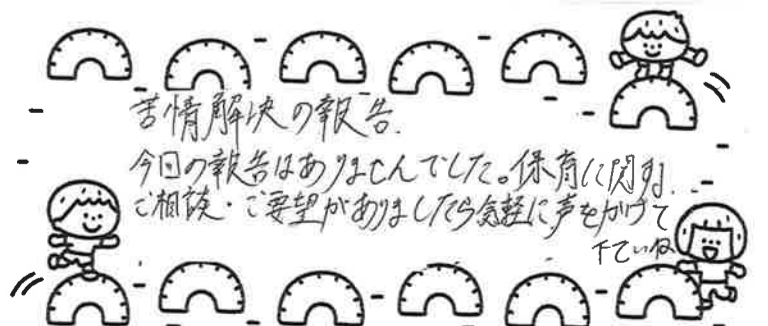 苦情解決の報告.
今回の報告はありませんでした。保育に関する
ご相談・ご要望がありましたら気軽に声をかけて
下さいね